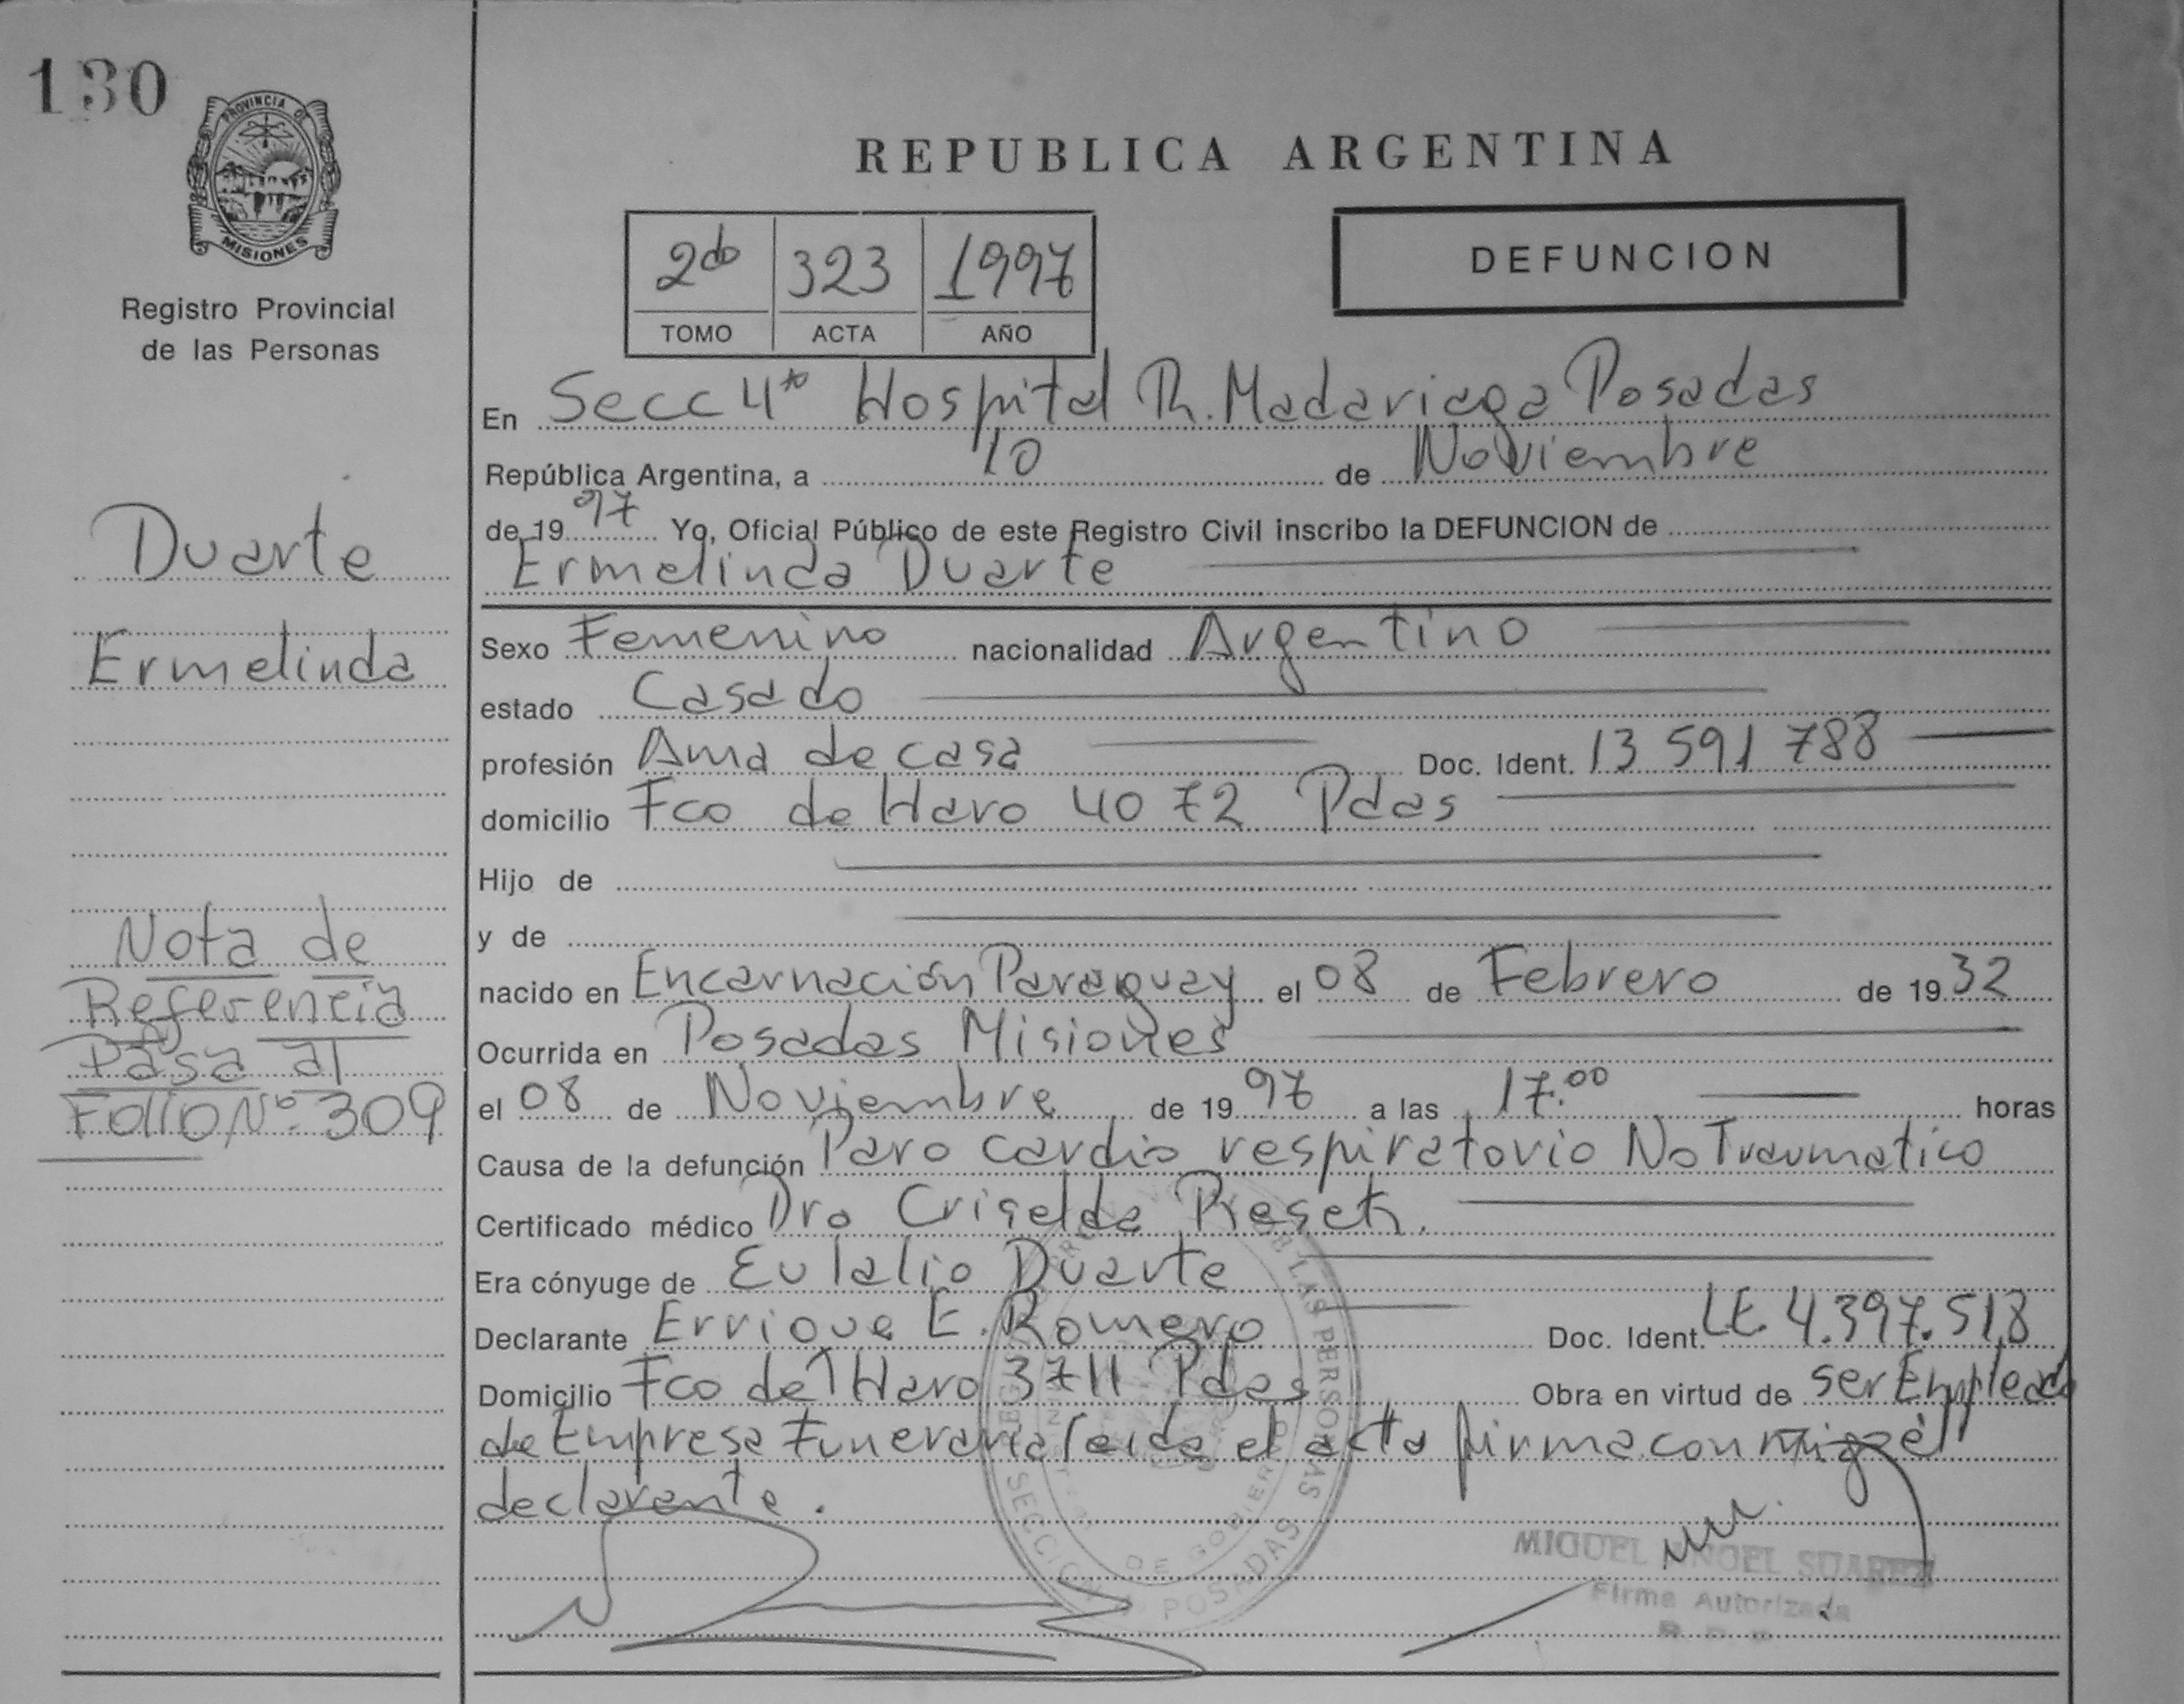 130
PROVINCIA DE
MISIONES
Registro Provincial
de las Personas
REPUBLICA ARGENTINA
2do 323 1997
TOMO ACTA AÑO
DEFUNCION
En Secc 4ta Hospital R. Madariaga Posadas
República Argentina, a 10 de Noviembre
de 1997 Yo, Oficial Público de este Registro Civil inscribo la DEFUNCION de
Ermelinda Duarte
Duarte
Ermelinda
Sexo Femenino nacionalidad Argentino
estado Casado
profesión Ama de casa Doc. Ident. 13 591 788
domicilio Fco de Haro 4072 Pdas
Hijo de
y de
nacido en Encarnación Paraguay el 08 de Febrero de 1932
Ocurrida en Posadas Misiones
el 08 de Noviembre de 1997 a las 17.00 horas
Causa de la defunción Paro cardio respiratorio No Traumatico
Certificado médico Dra Criselda
Era cónyuge de Eulalio Duarte
Declarante Errique E. Romero Doc. Ident. LE. 4.397.518
Domicilio Fco de Haro 3711 Pdas Obra en virtud de ser Empleado
de Empresa Funeraria leida el acta firma con migo el
declarante.
Nota de
Referencia
Pasa al
Folio Nº. 309
LAS PERSONAS
DE GOBIERNO
SECCION POSADAS
MIGUEL ANGEL SUAREZ
Firma Autorizada